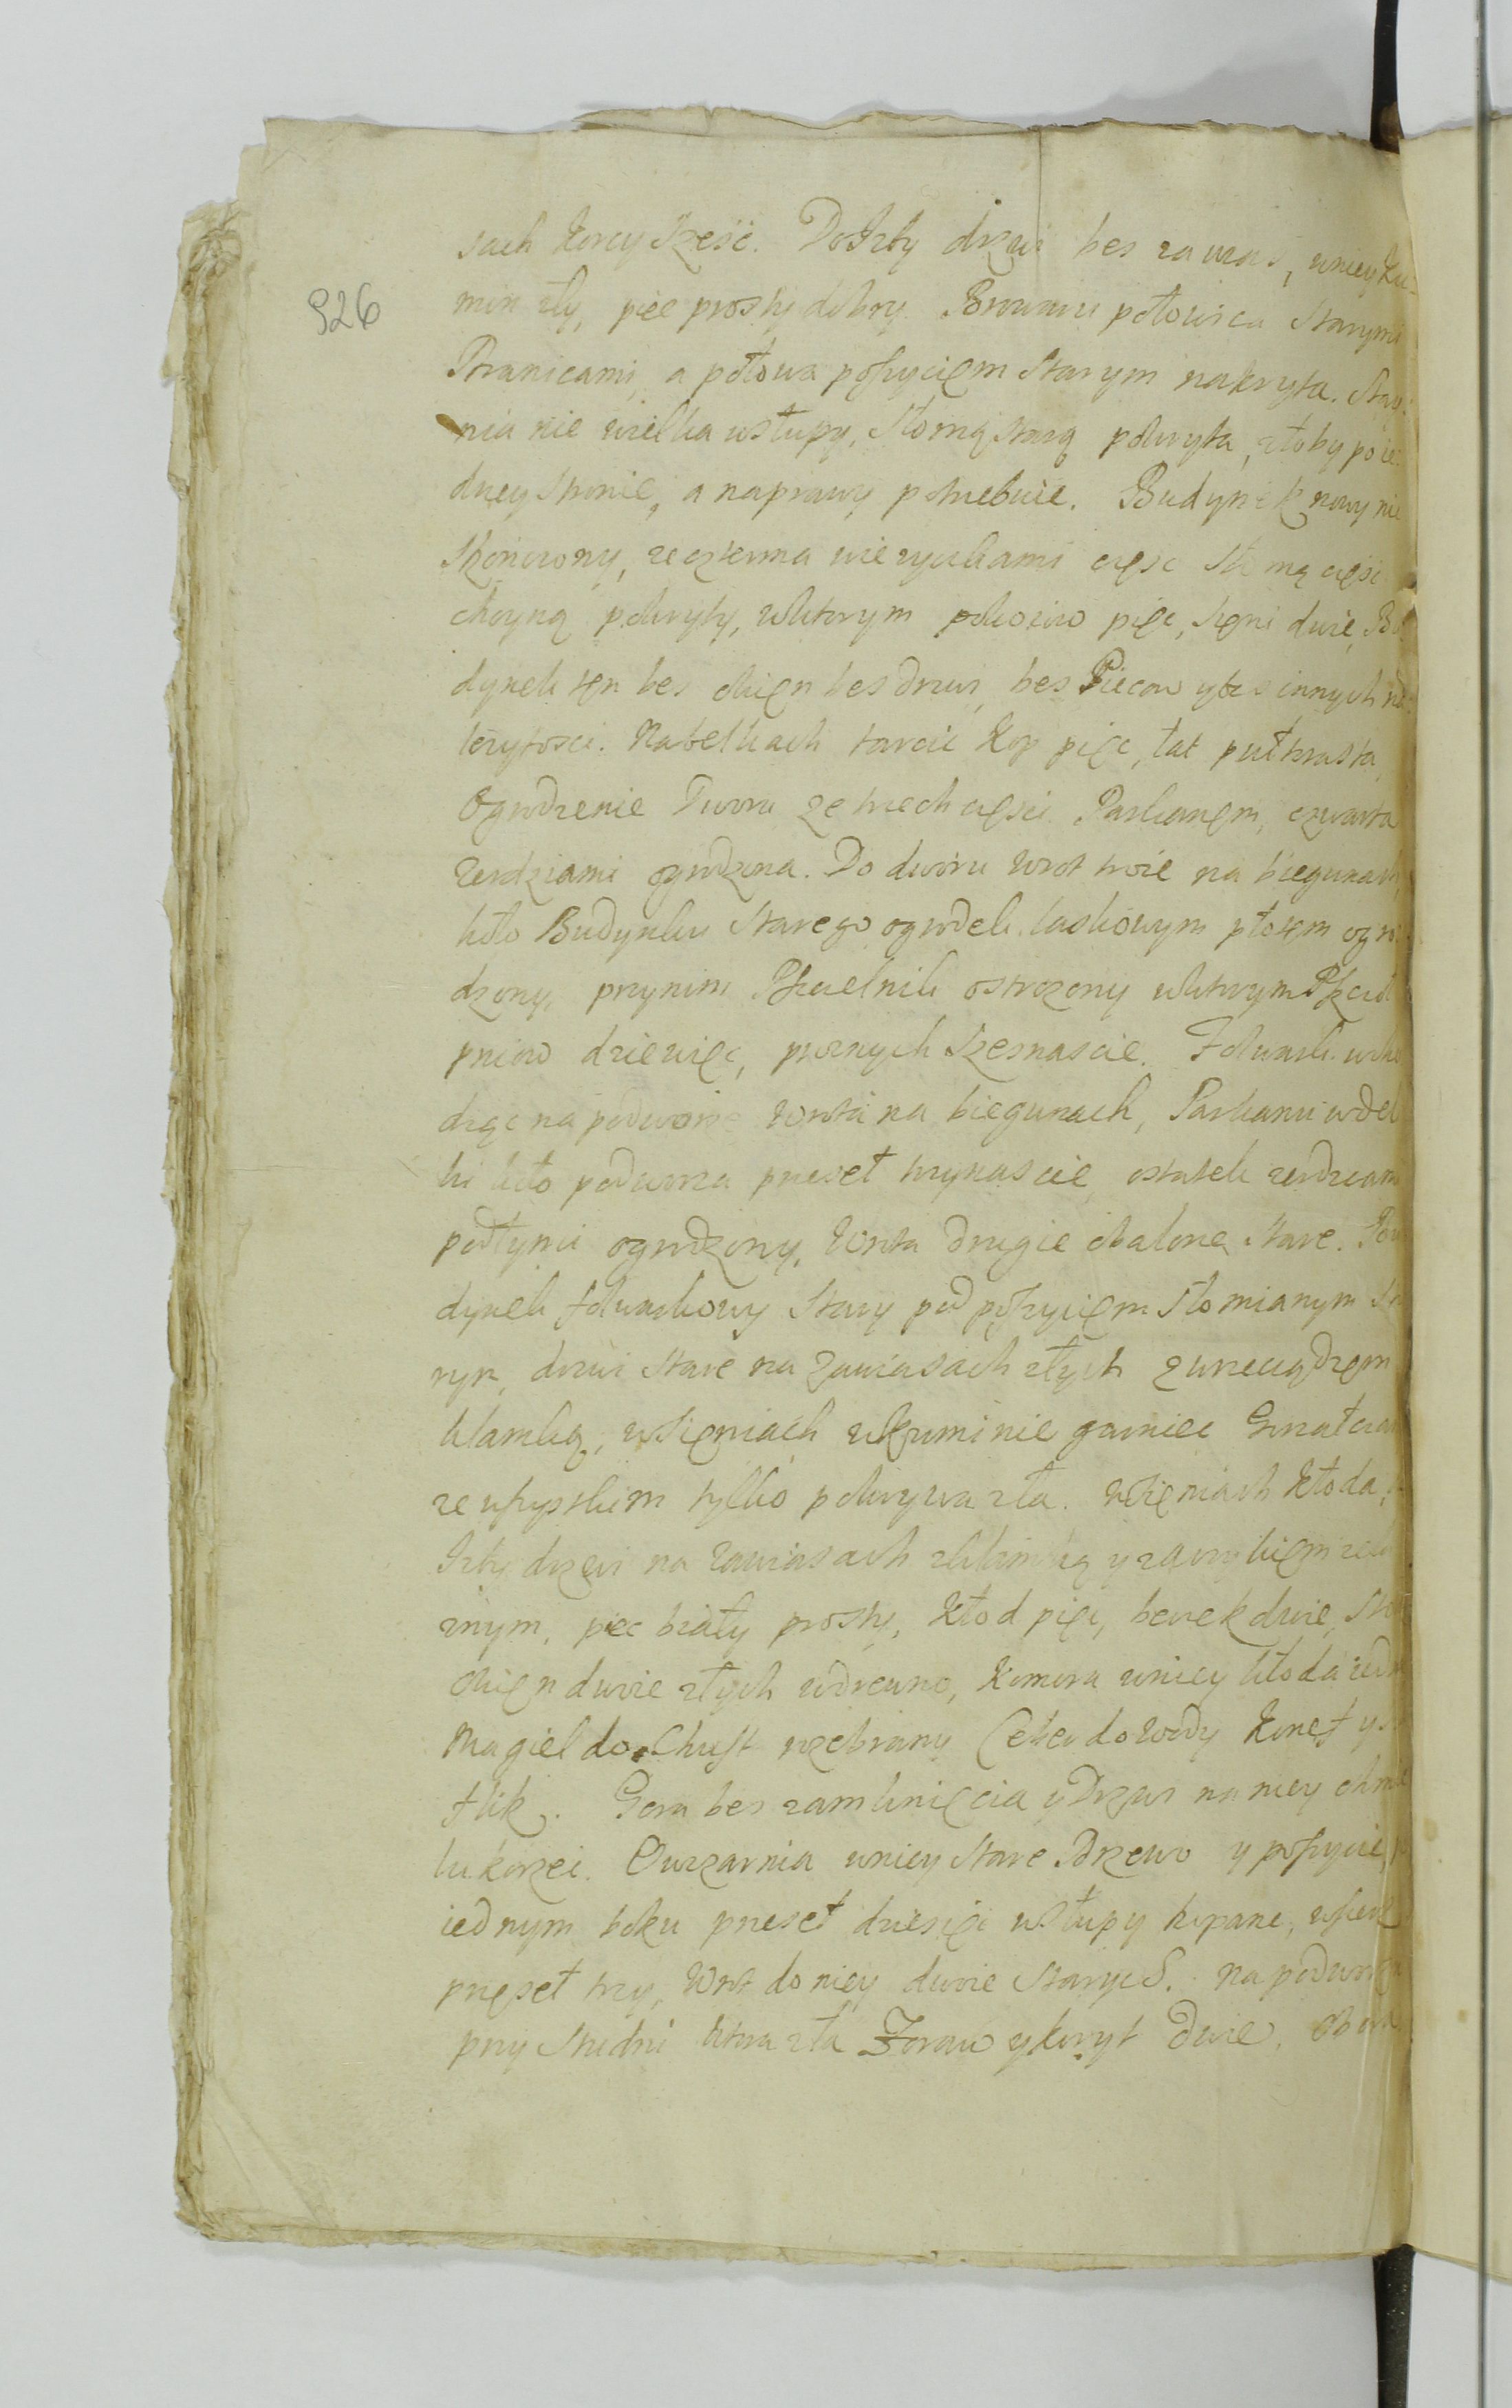 926
sach korcy sześc. Do Izby drzwi bes zawias, wniey ku-
min zły, piec prosty dobry. Browaru połowica starymi
Tranicami, a połowa poszyciem starym nakryta. Stay-
nia nie wielka wsłupy, słomą starą pokryta, złoby po ie-
dney stronie, a naprawy potrzebuie. Budynek nowy nie
skonczony, ze czterma wiezyczkami częsc słomą częsc
choyną pokryty, wktorym pokoiow pięc, sieni dwie, Bu
dynek ten bes okien bes drzwi, bes Piecow y bes innych na
lezytosci. Na belkach tarcic kop pięc, łat pułtrasta,
Ogrodzenie Dworu ze trzech częsci Parkanem, czwarta
zerdziami ogrodzona. Do dworu wrot troie na biegunach
koło Budynku starego ogrodek laskowym płotem ogro
dzony, przy nim Pszczelnik ostrozony wktorym Pszczoł
pniow dziewięc, proznych szesnascie. Folwark wcho
dząc na podworze wrota na biegunach, Parkanu wdel
ki koło podworza przeseł trzynascie, ostatek zerdziami
podłymi ogrodzony, wrota drugie obalone stare. Bu
dynek folwarkowy stary pod poszyciem słomianym sta
rym, drzwi stare na zawiasach złych z wrzeciądzem
klamką, w sieniach w kuminie garniec Gorzałczany
ze wszystkim tylko pokrywa zła. w sieniach kłoda,
Izby drzwi na zawiasach z klamką y z haczykiem zela
znym, piec biały prosty, kłod pięc, beczek dwie, sto
okien dwie złych wdrewno, komora wniey kłoda iedna
Magiel do Chust rozebrany Ceber do wody konef y s
flik. Gora bes zamknięcia y Drzwi na niey chmie
lu korzec. Owczarnia wniey stare Drzewo y poszycie,
iednym boku przeseł dziesięc wsłupy kopane,
przeseł trzy, wrot do niey dwoie starych. na podworzu
przy studni ktora zła Zoraw y koryt dwie.